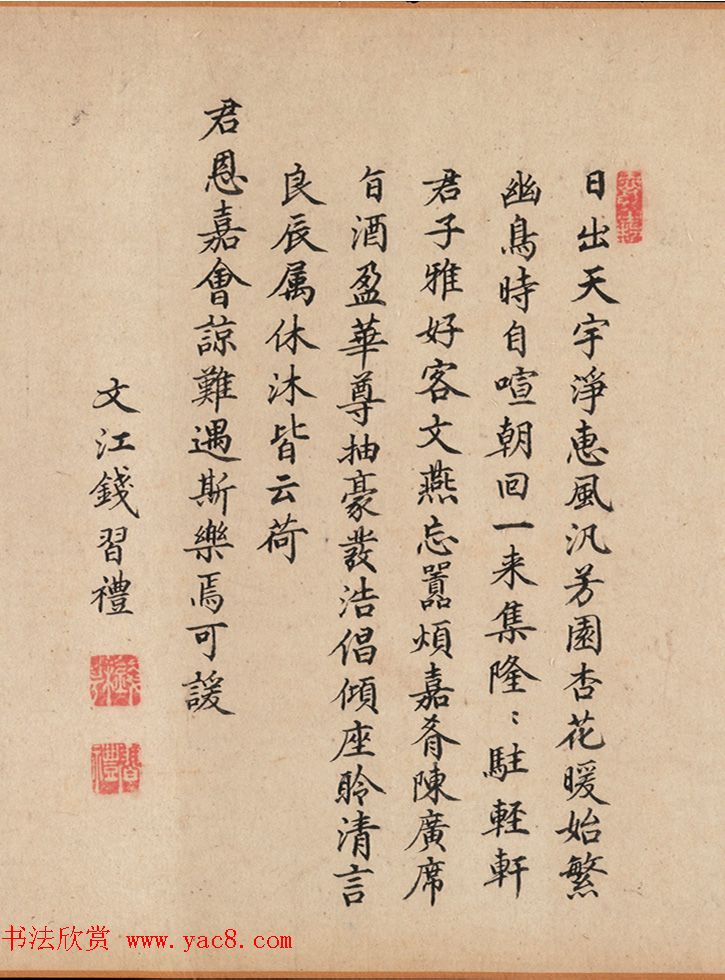 日出天宇淨惠風汎芳園杏花暖始繁
幽鳥時自喧朝回一来集隆〻駐輕軒
君子雅好客文燕忘囂煩嘉肴陳廣席
旨酒盈華尊抽豪發浩倡傾座聆清言
良辰属休沐皆云荷
君恩嘉會諒難遇斯樂焉可諼
文江錢習禮
書法欣赏 www.yac8.com